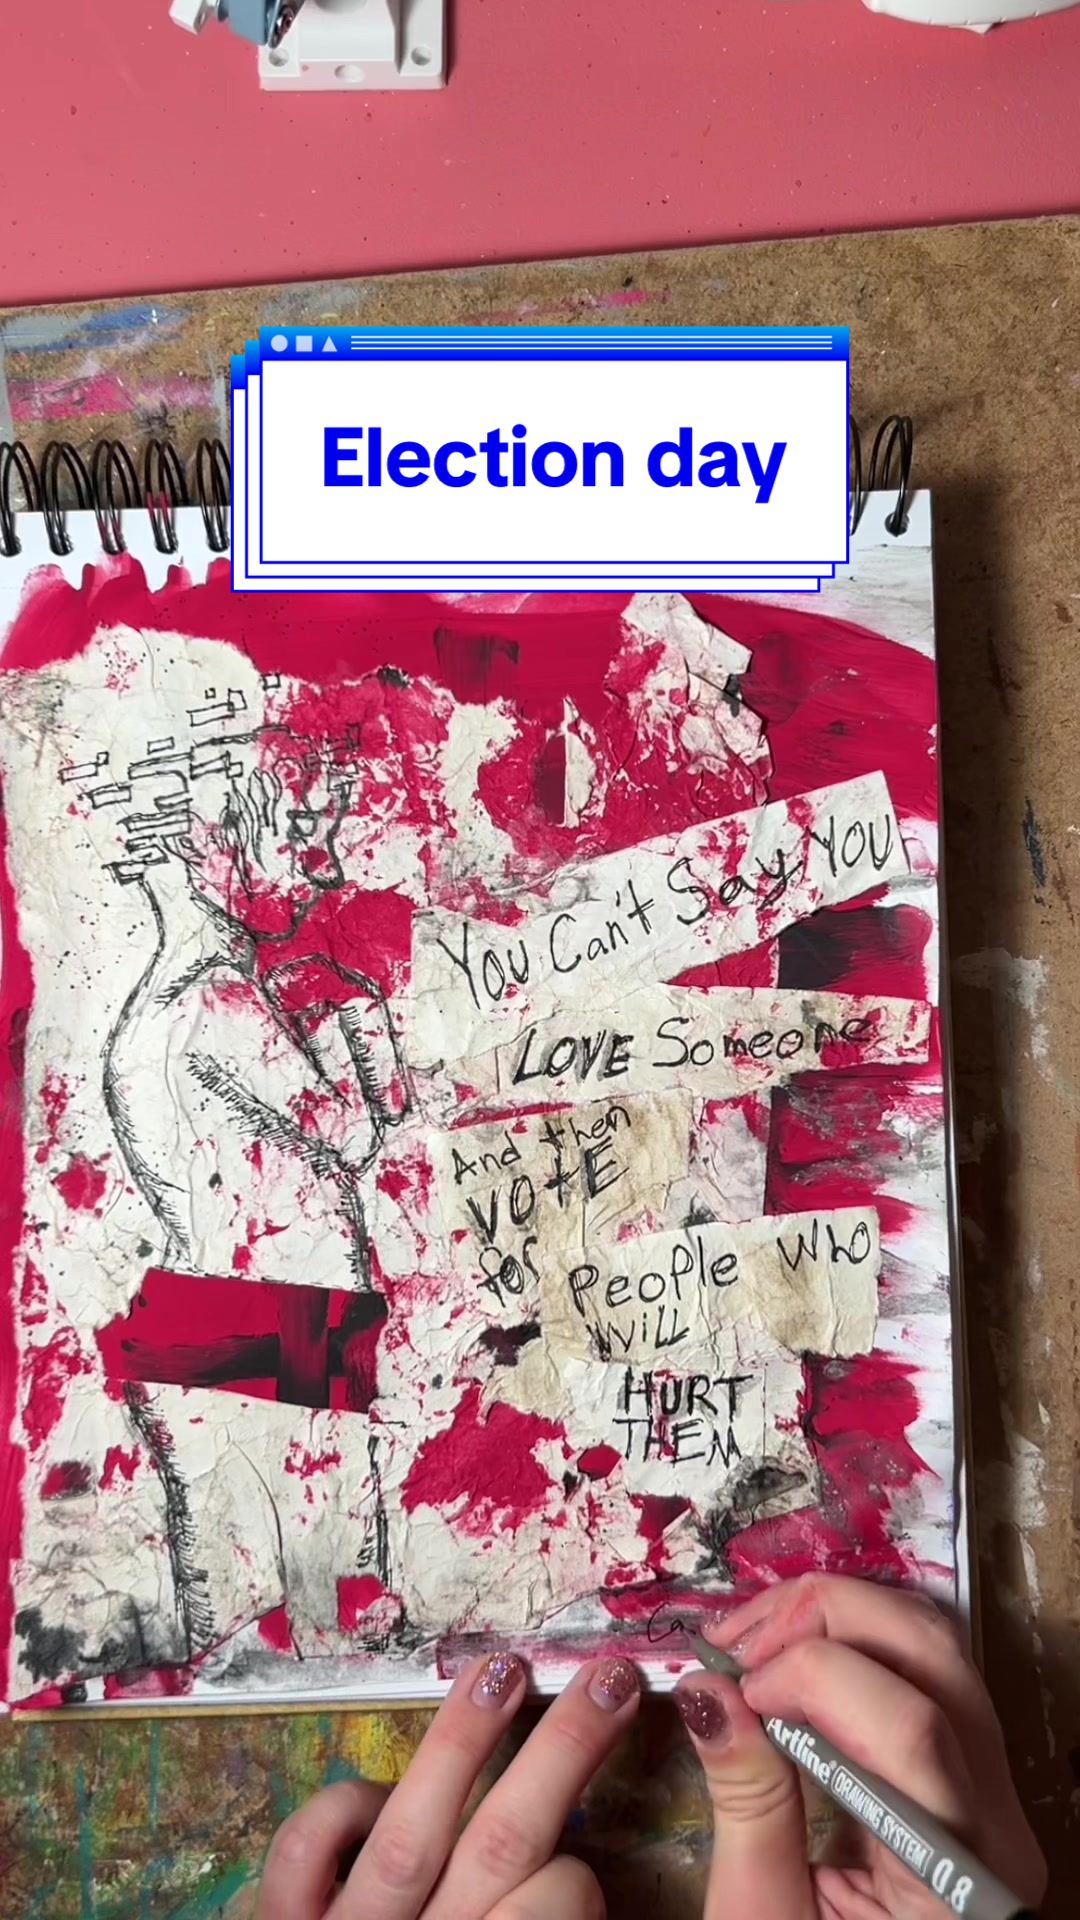 Election day
You Can't Say YOU
LOVE Someone
And then
VOtE
for
People Who
Will
HURT
THEM
Ca
Artline DRAWING SYSTEM 0.8